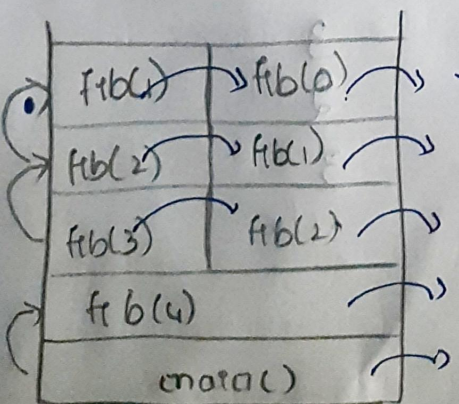 fib(1) fib(0)
fib(2) fib(1)
fib(3) fib(2)
fib(4)
main()